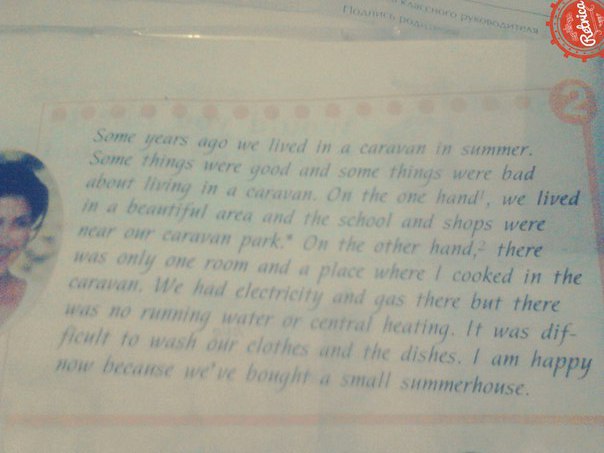 классного руководителя
Подпись
Retrica
2
Some years ago we lived in a caravan in summer.
Some things were good and some things were bad
about living in a caravan. On the one hand¹, we lived
in a beautiful area and the school and shops were
near our caravan park.* On the other hand,² there
was only one room and a place where I cooked in the
caravan. We had electricity and gas there but there
was no running water or central heating. It was dif-
ficult to wash our clothes and the dishes. I am happy
now because we've bought a small summerhouse.